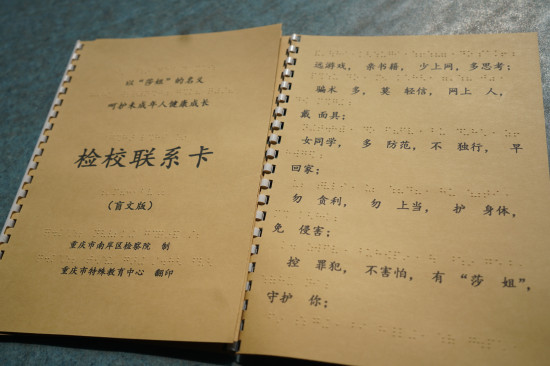 以“莎姐”的名义
呵护未成年人健康成长
检校联系卡
（盲文版）
重庆市南岸区检察院 制
重庆市特殊教育中心 翻印
远游戏，亲书籍，少上网，多思考；
骗术 多，莫 轻信，网上 人，
戴 面具；
女同学，多 防范，不 独行，早
回家；
勿 贪利，勿 上当，护 身体，
免 侵害；
控 罪犯，不害怕，有 “莎 姐”，
守护 你；